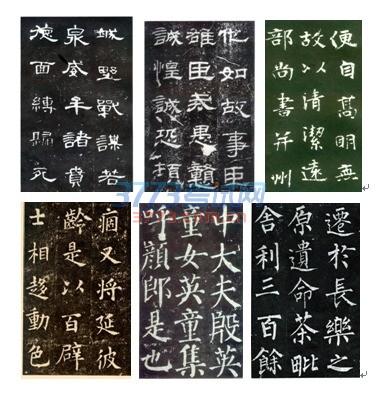 城野戰謀若
泉威牟諸賁
面縛歸死
化如故事臣
雄臣戒愚戇
誠惶誠恐頓
便自高明無
故以清潔遠
部尚書并州
3773考试网
痼又將延彼
齡是以百辟
士相趍動色
中大夫殷英
童女英童集
呼顏郎是也
遷於長樂之
原遺命茶毗
舍利三百餘